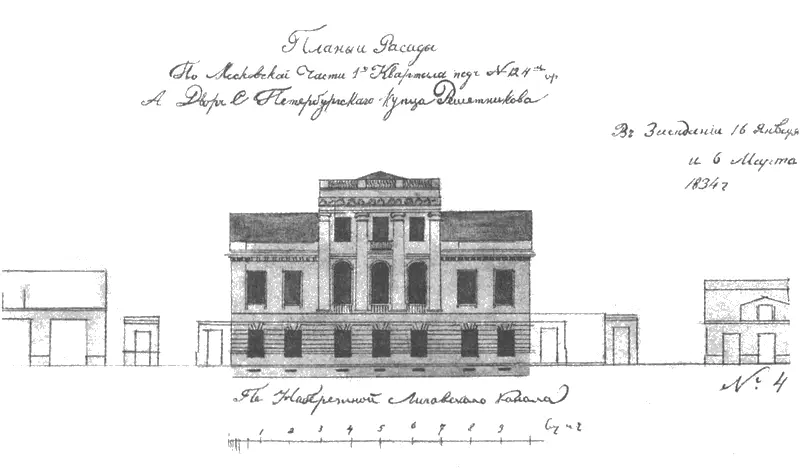 Планы и Фасады
По Московской Части 1го Квартала подъ № 124мъ
А Дворъ С Петербургскаго Купца Решетникова
Въ Заседании 16 Января
и 6 Марта
1834 г
№ 4
По Набережной Лиговскаго Канала
1 2 3 4 5 6 7 8 9